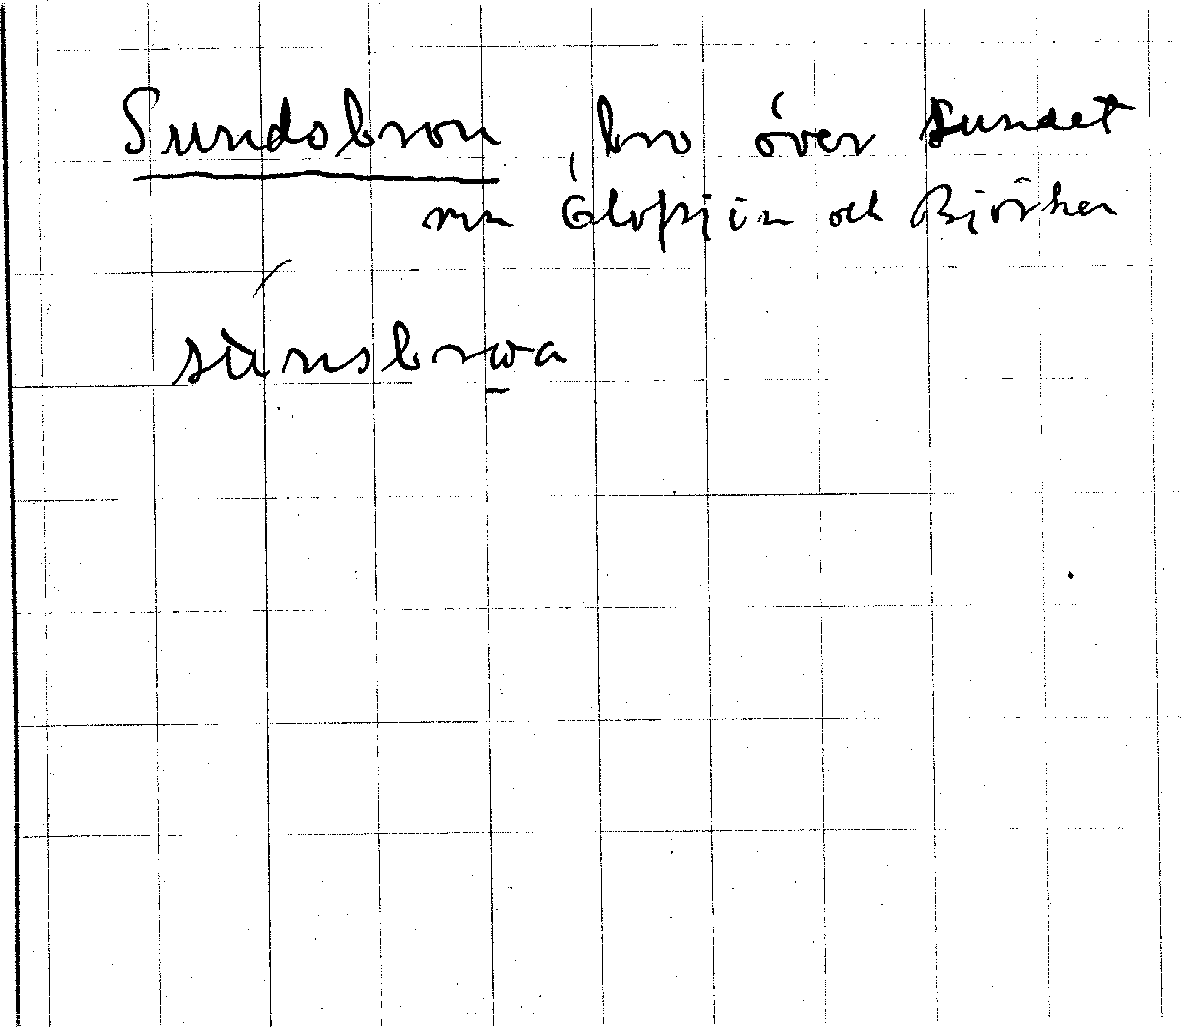 Sundsbron, bro över sundet
mn Älvsjön och Björken
sùnsbrωa